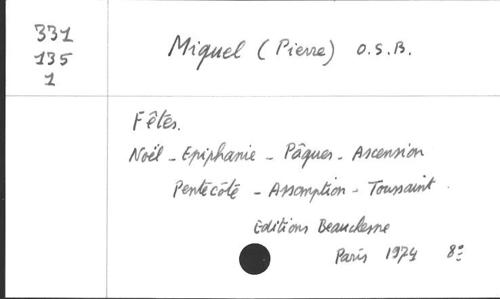 331
135
1
Miquel (Pierre) O.S.B.
Fêtes.
Noël - Epiphanie - Pâques - Ascension
Pentecôte - Assomption - Toussaint.
Editions Beauchesne
Paris 1974 8º